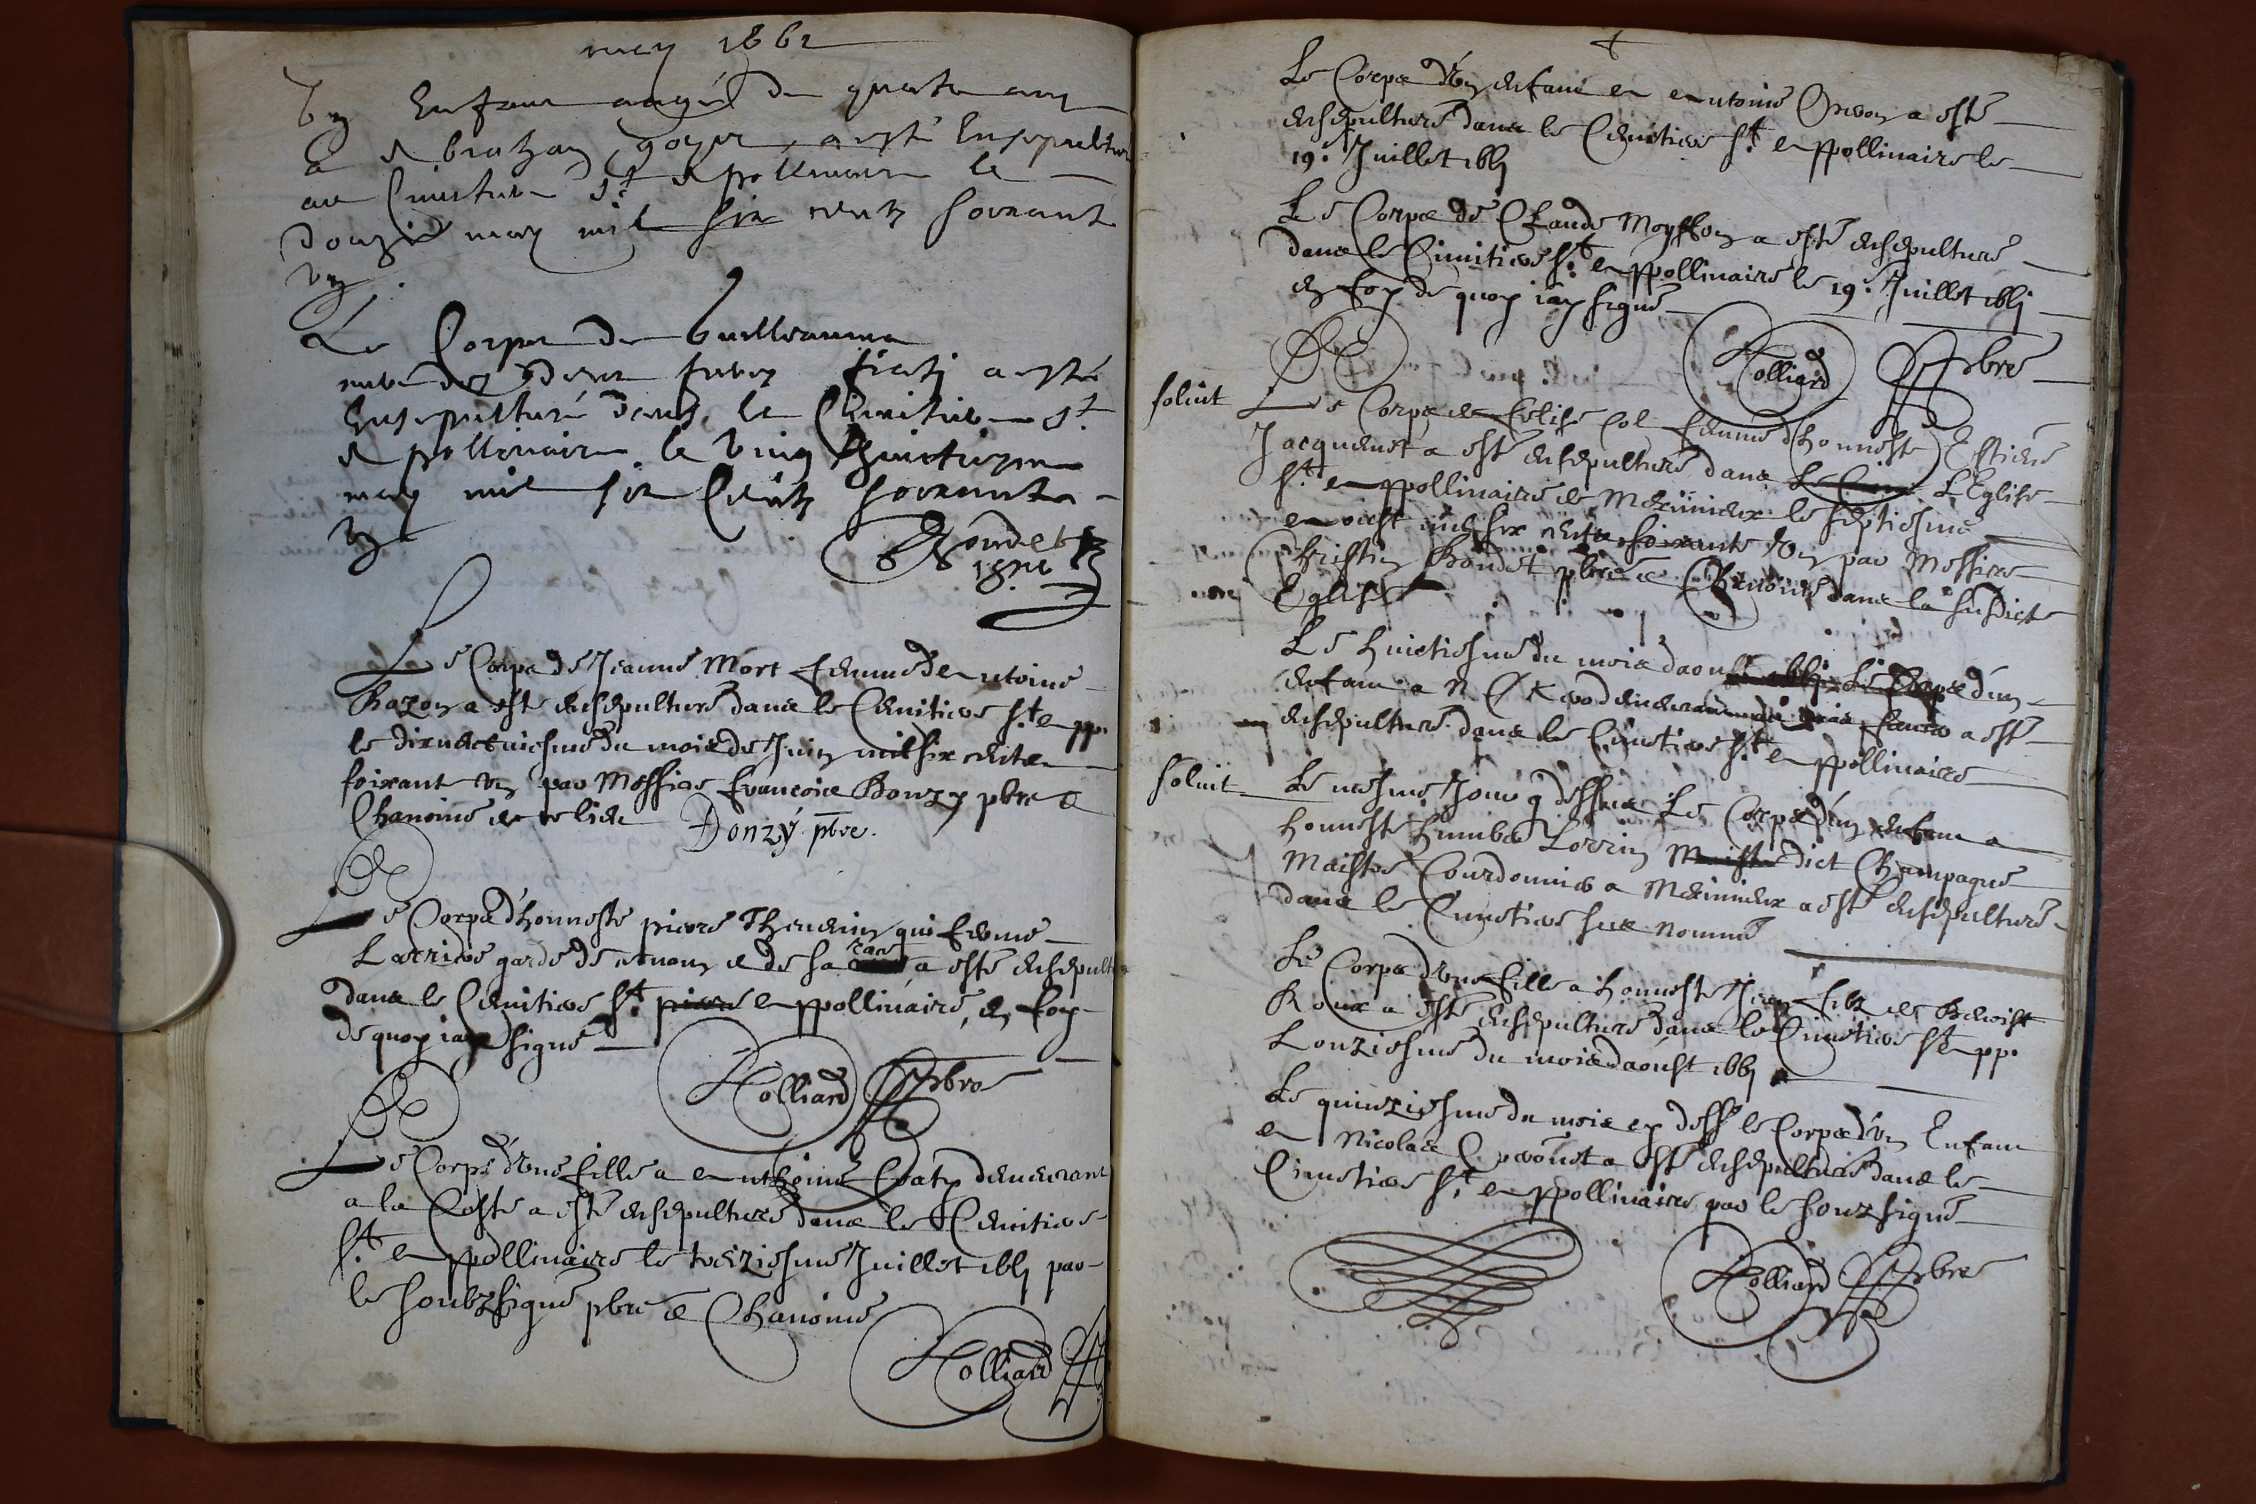 may 1661
Vng Enfant aagé de quatre ans
a Abraham goyer, a esté Ensepulturé
au Cimetiere St Appollinaire le
douzie may mil six centz soixant
Vng.
Le Corps de Guilleaume
a esté
Ensepulturé dans le Cimitiere St
Appollinaire le Vingt huictiesme
may mil six Centz soixante
Vng
Le Corps de Jeanne Mort femme de Antoine
Bozon a esté ensepulturé dans le Cemitiere St App.
le dixneufuiesme du mois de Juin mil six cents
soixant vn par Messire francois Donzy pbre &
Chanoine de ce lieu Donzÿ pbre.
Le Corps d'honneste pierre Thevenin qui ferme
Larriere garde de et de sa race a esté ensepult
dans le Cemitiere St pierre Appollinaire, en foy
de quoy iay signé
Folliard pbre
Le Corps d'vne fille a Anthoine demeurant
a la Coste a esté ensepulturé dans le Cemitiere
St Appollinaire le treiziesme Juillet 1661 par
le soubzsigné pbre & Chanoine
Folliard
Le Corps d'vn enfant a Antoine a esté
ensepulturé dans le Cemitiere St Appollinaire le
19. Juillet 1661
Le Corps de Claude Moysson a esté ensepulturé
dans le Cimitiere St Appollinaire le 19. Juillet 1661
en foy de quoy iay signé
Folliard pbre
soluit Le Corps de femme d'honneste Estiene
Jacquemet a esté ensepulturé dans L'Eglise
St Appollinaire de Meximieux le septiesme
aoust mil six cents soixante vn par Messire
Christin Bondet pbre & Chanoine dans la susdicte
Eglise
Le huictiesme du mois daoust 1661 Le Corps d'un
enfant a N a esté
ensepulturé dans le Cimetiere St Appollinaire
soluit Le mesme Jour q dessus Le Corps d'un enfant a
honneste humber Lorrin Maistre dict Champagne
Maistre Courdonnier a Meximieux a esté ensepulturé
dans le Cimetiere sus nommé
Le Corps d'vne fille a honneste Jean filz de Benoist
Roux a esté ensepulturé dans le Cimetiere St App.
Lonziesme du mois daoust 1661
Le quinziesme du mois cy dess. le Corps d'vn Enfant
a Nicolas a esté ensepulturé dans le
Cimetiere St Appollinaire par le soubzsigné
Folliard pbre